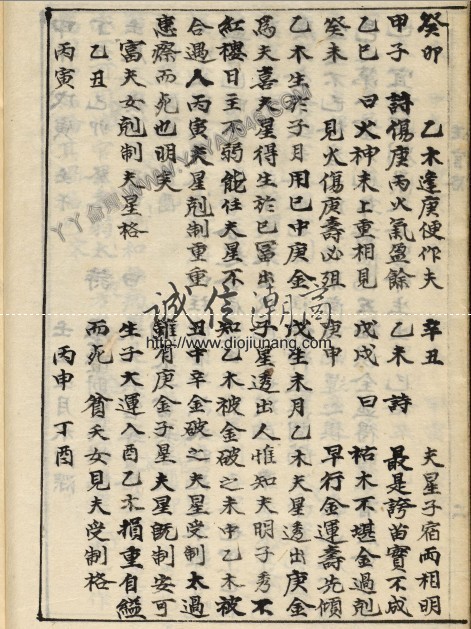 癸卯 乙木逢庚便作夫
甲子 詩傷庚丙火氣盈餘
乙巳 曰火神未上重相見
癸未 見火傷庚壽必殂
乙木生於子月用巳中庚金
為夫喜夫星得生於巳冨出
紅樓日主不弱能任夫星不
合遇人丙寅夫星剋制重重
患瘵而死也明矣
富夫女剋制夫星格
乙丑
丙寅
辛丑 夫星子宿两相明
乙未 詩 最是誇苗實不成
戊戌 曰 枯木不堪金過剋
庚申 早行金運壽先傾
戊生未月乙木夫星透出庚金
子星透出人惟知夫明子秀不
知乙木被金破之未中乙木被
丑中辛金破之夫星受制太過
雖有庚金子星夫星既制安可
生子大運入酉乙木損重自縊
而死 貧夭女見夫受制格
丙申 丁酉
http://www.diojiunang.com